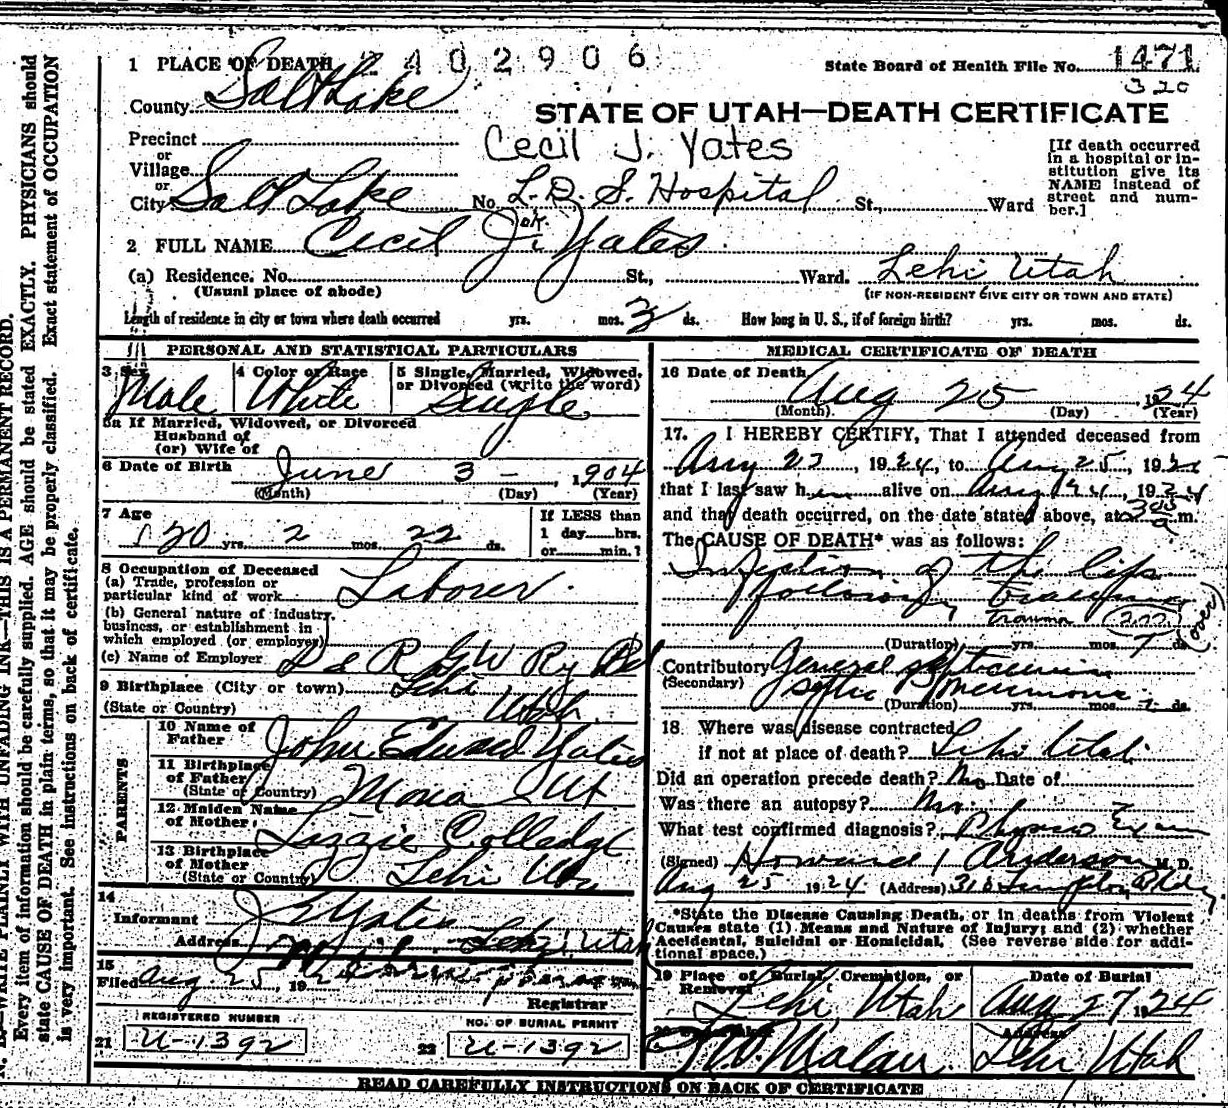 1 PLACE OF DEATH 2402906 State Board of Health File No. 1471
320
County Salt Lake
STATE OF UTAH—DEATH CERTIFICATE
Precinct
Cecil J. Yates
or
Village
or
City Salt Lake No. L. D. S. Hospital St., Ward
[If death occurred
in a hospital or in-
stitution give its
NAME instead of
street and num-
ber.]
2 FULL NAME Cecil J. Yates
(a) Residence. No. St., Ward. Lehi Utah
(Usual place of abode) (IF NON-RESIDENT GIVE CITY OR TOWN AND STATE)
Length of residence in city or town where death occurred yrs. mos. 3 ds. How long in U. S., if of foreign birth? yrs. mos. ds.
PERSONAL AND STATISTICAL PARTICULARS
3 Sex 4 Color or Race 5 Single, Married, Widowed,
or Divorced (write the word)
Male White Single
5a If Married, Widowed, or Divorced
Husband of
(or) Wife of
6 Date of Birth June 3 - , 1904
(Month) (Day) (Year)
7 Age
20 yrs. 2 mos. 22 ds.
If LESS than
1 day hrs.
or min.?
8 Occupation of Deceased
(a) Trade, profession or
particular kind of work Laborer
(b) General nature of industry,
business, or establishment in
which employed (or employer)
(c) Name of Employer D & R G W Ry
9 Birthplace (City or town) Lehi
(State or Country) Utah
PARENTS
10 Name of
Father John Edward Yates
11 Birthplace
of Father
(State or Country) Mona Ut
12 Maiden Name
of Mother Lizzie Colledge
13 Birthplace
of Mother
(State or Country) Lehi
14
Informant J E Yates
Address Lehi, Utah
15
Filed Aug 25, 192
Registrar
REGISTERED NUMBER NO. OF BURIAL PERMIT
21 U-1392 22 U-1392
MEDICAL CERTIFICATE OF DEATH
16 Date of Death
Aug 25 1924
(Month) (Day) (Year)
17. I HEREBY CERTIFY, That I attended deceased from
Aug 23, 1924, to Aug 25, 1924
that I last saw him alive on Aug 1924
and that death occurred, on the date stated above, at m.
The CAUSE OF DEATH* was as follows:
Infection of the lips
following
trauma (over)
(Duration) yrs. mos. 7 ds.
Contributory General septicemia
(Secondary) septic Pneumonia
(Duration) yrs. mos. 2 ds.
18. Where was disease contracted
if not at place of death? Lehi Utah
Did an operation precede death? No Date of
Was there an autopsy? No
What test confirmed diagnosis? Exam
(Signed) Howard Anderson M. D.
Aug 25 1924 (Address) 316 Templeton Bldg
*State the Disease Causing Death, or in deaths from Violent
Causes state (1) Means and Nature of Injury; and (2) whether
Accidental, Suicidal or Homicidal. (See reverse side for addi-
tional space.)
19 Place of Burial, Cremation, or Date of Burial
Removal
Lehi, Utah Aug 27 1924
Address
Lehi, Utah
READ CAREFULLY INSTRUCTIONS ON BACK OF CERTIFICATE
WRITE PLAINLY WITH UNFADING INK—THIS IS A PERMANENT RECORD.
Every item of information should be carefully supplied. AGE should be stated EXACTLY. PHYSICIANS should
state CAUSE OF DEATH in plain terms, so that it may be properly classified. Exact statement of OCCUPATION
is very important. See instructions on back of certificate.